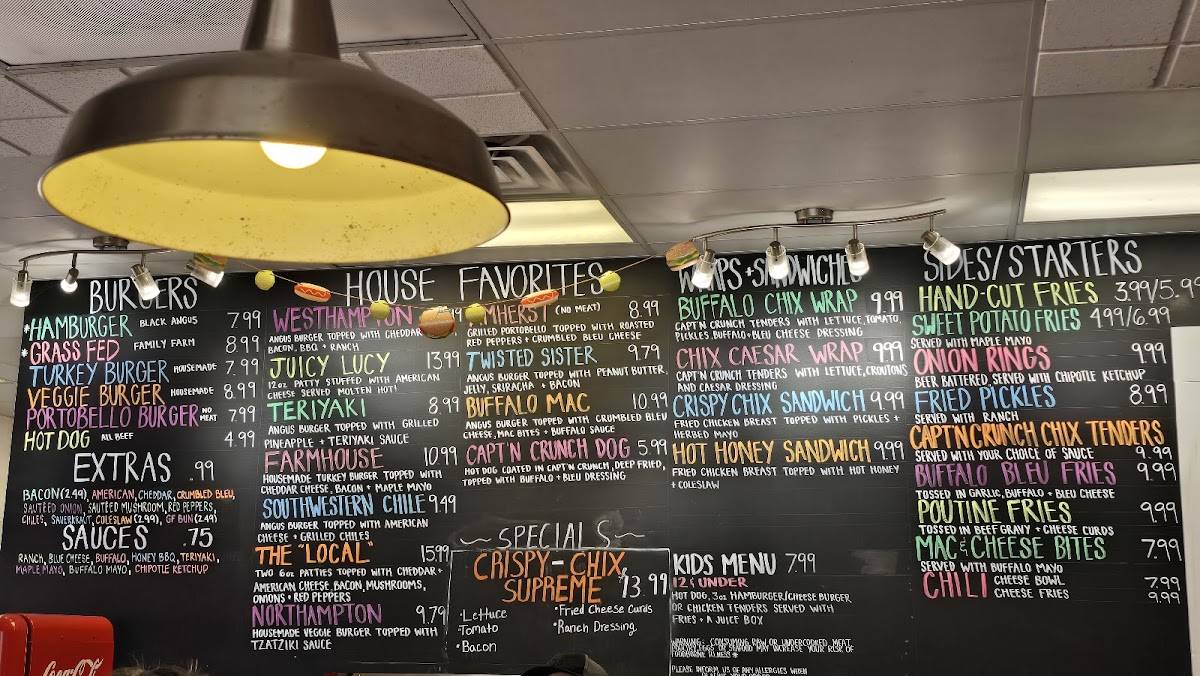 BURGERS
*HAMBURGER BLACK ANGUS 7.99
*GRASS FED FAMILY FARM 8.99
TURKEY BURGER HOUSEMADE 7.99
VEGGIE BURGER HOUSEMADE 8.99
PORTOBELLO BURGER NO MEAT 7.99
HOT DOG ALL BEEF 4.99
EXTRAS .99
BACON(2.49), AMERICAN, CHEDDAR, CRUMBLED BLEU,
SAUTÉED ONION, SAUTÉED MUSHROOM, RED PEPPERS,
CHILES, SAUERKRAUT, COLESLAW(2.99), GF BUN(2.49)
SAUCES .75
RANCH, BLUE CHEESE, BUFFALO, HONEY BBQ, TERIYAKI,
MAPLE MAYO, BUFFALO MAYO, CHIPOTLE KETCHUP
Coca-Cola
HOUSE FAVORITES
WESTHAMPTON
ANGUS BURGER TOPPED WITH CHEDDAR
BACON, BBQ + RANCH
JUICY LUCY 13.99
12oz PATTY STUFFED WITH AMERICAN
CHEESE SERVED MOLTEN HOT!
TERIYAKI 8.99
ANGUS BURGER TOPPED WITH GRILLED
PINEAPPLE + TERIYAKI SAUCE
FARMHOUSE 10.99
HOUSEMADE TURKEY BURGER TOPPED WITH
CHEDDAR CHEESE, BACON + MAPLE MAYO
SOUTHWESTERN CHILE 9.49
ANGUS BURGER TOPPED WITH AMERICAN
CHEESE + GRILLED CHILES
THE "LOCAL" 15.99
TWO 6oz PATTIES TOPPED WITH CHEDDAR +
AMERICAN CHEESE, BACON, MUSHROOMS,
ONIONS + RED PEPPERS
NORTHAMPTON 9.79
HOUSEMADE VEGGIE BURGER TOPPED WITH
TZATZIKI SAUCE
AMHERST (NO MEAT) 8.99
GRILLED PORTOBELLO TOPPED WITH ROASTED
RED PEPPERS + CRUMBLED BLEU CHEESE
TWISTED SISTER 9.79
ANGUS BURGER TOPPED WITH PEANUT BUTTER,
JELLY, SRIRACHA + BACON
BUFFALO MAC 10.99
ANGUS BURGER TOPPED WITH CRUMBLED BLEU
CHEESE, MAC BITES + BUFFALO SAUCE
CAPT'N CRUNCH DOG 5.99
HOT DOG COATED IN CAPT'N CRUNCH, DEEP FRIED,
TOPPED WITH BUFFALO + BLEU DRESSING
~SPECIALS~
CRISPY-CHIX SUPREME $13.99
•Lettuce
•Tomato
•Bacon
•Fried Cheese Curds
•Ranch Dressing.
WRAPS + SANDWICHES
BUFFALO CHIX WRAP 9.99
CAPT'N CRUNCH TENDERS WITH LETTUCE, TOMATO,
PICKLES, BUFFALO + BLEU CHEESE DRESSING
CHIX CAESAR WRAP 9.99
CAPT'N CRUNCH TENDERS WITH LETTUCE, CROUTONS
AND CAESAR DRESSING
CRISPY CHIX SANDWICH 9.99
FRIED CHICKEN BREAST TOPPED WITH PICKLES +
HERBED MAYO
HOT HONEY SANDWICH 9.99
FRIED CHICKEN BREAST TOPPED WITH HOT HONEY
+ COLESLAW
KIDS MENU 7.99
12 & UNDER
HOT DOG, 3oz HAMBURGER/CHEESE BURGER
OR CHICKEN TENDERS SERVED WITH
FRIES + A JUICE BOX
WARNING: CONSUMING RAW OR UNDERCOOKED MEAT,
POULTRY, EGGS OR SEAFOOD MAY INCREASE YOUR RISK OF
FOODBORNE ILLNESS *
PLEASE INFORM US OF ANY ALLERGIES WHEN
PLACING YOUR ORDER
SIDES/STARTERS
HAND-CUT FRIES 3.99/5.99
SWEET POTATO FRIES 4.99/6.99
SERVED WITH MAPLE MAYO
ONION RINGS 9.99
BEER BATTERED SERVED WITH CHIPOTLE KETCHUP
FRIED PICKLES 8.99
SERVED WITH RANCH
CAPT'N CRUNCH CHIX TENDERS
SERVED WITH YOUR CHOICE OF SAUCE 9.99
BUFFALO BLEU FRIES 9.99
TOSSED IN GARLIC, BUFFALO + BLEU CHEESE
POUTINE FRIES 9.99
TOSSED IN BEEF GRAVY + CHEESE CURDS
MAC & CHEESE BITES 7.99
SERVED WITH BUFFALO MAYO
CHILI CHEESE BOWL 7.99
CHEESE FRIES 9.99